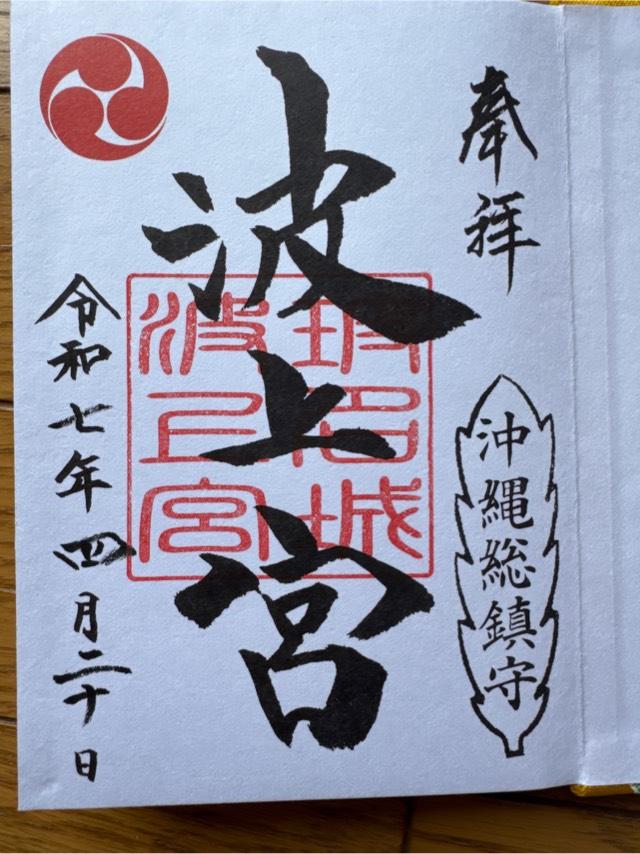 奉拝
沖縄総鎮守
波上宮
令和七年四月二十日
波上宮